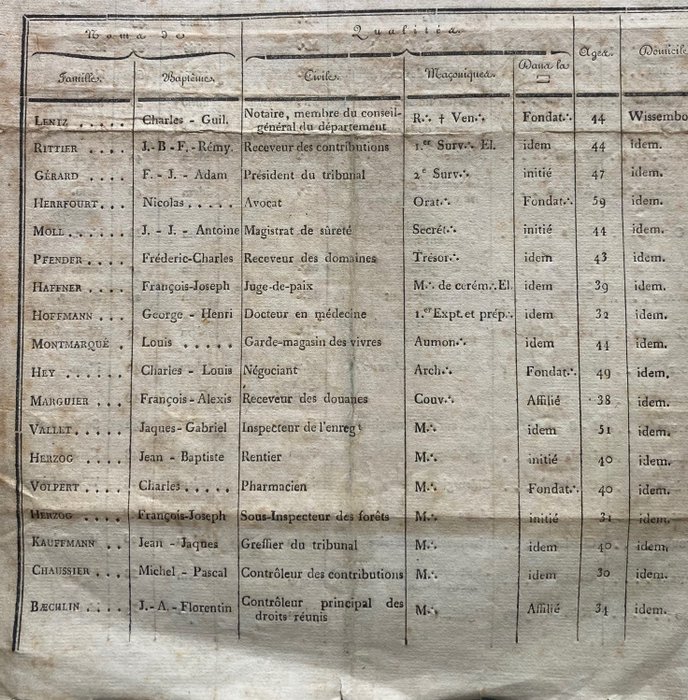 Noms de Qualités Ages Domicile
Famille. Baptême. Civile. Maçoniques. Dans la ▭
LENTZ ..... Charles - Guil. Notaire, membre du conseil-général du département R∴ † Ven∴ Fondat∴ 44 Wissembo
RITTIER .... J.-B-F.-Rémy. Receveur des contributions 1.er Surv∴ El. idem 44 idem.
GÉRARD .... F. - J. - Adam Président du tribunal 2e Surv∴ initié 47 idem.
HERRFOURT... Nicolas ..... Avocat Orat∴ Fondat∴ 59 idem.
MOLL...... J. - J. - Antoine Magistrat de sûreté Secrét∴ initié 44 idem.
PFENDER .... Fréderic-Charles Receveur des domaines Trésor∴ idem 43 idem.
HAFFNER ... François-Joseph Juge-de-paix M∴ de cerém∴ El. idem 39 idem.
HOFFMANN ... George - Henri Docteur en médecine 1.er Expt. et prép∴ idem 32 idem.
MONTMARQUÉ . Louis ..... Garde-magasin des vivres Aumon∴ idem 44 idem.
HEY ...... Charles - Louis Négociant Arch∴ Fondat∴ 49 idem.
MARGUIER ... François-Alexis Receveur des douanes Couv∴ Affilié 38 idem.
VALLET..... Jaques-Gabriel Inspecteur de l'enregt M∴ idem 51 idem.
HERZOG .... Jean - Baptiste Rentier M∴ initié 40 idem.
VOLPERT .... Charles ..... Pharmacien M∴ Fondat∴ 40 idem.
HERZOG .... François-Joseph Sous-Inspecteur des forêts M∴ initié 31 idem.
KAUFFMANN .. Jean - Jaques Greffier du tribunal M∴ idem 40 idem.
CHAUSSIER ... Michel - Pascal Contrôleur des contributions M∴ idem 30 idem.
BÆCHLIN .... J.-A.-Florentin Contrôleur principal des droits réunis M∴ Affilié 34 idem.